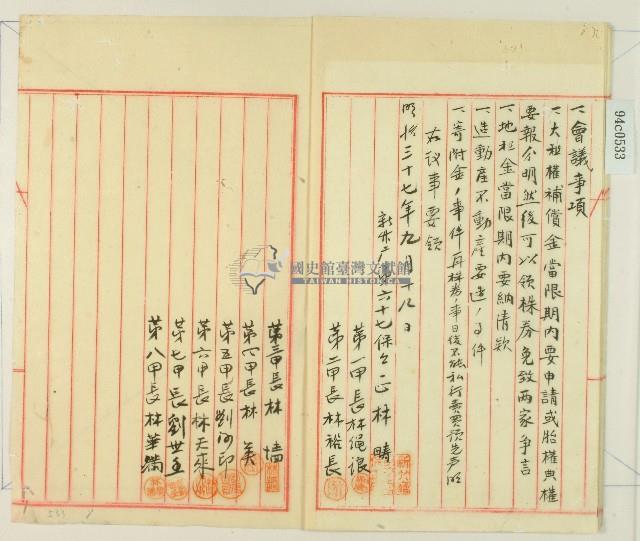 94c0533
一會議事項
一大租權補償金當限期內要申請或胎權典權
要報分明然後可以領株券免致兩家爭言
一地租金當限期內要納清款
一造動產不動產要造ノ事件
一寄附金ノ事件再株券ノ事日後不能私行賣買預先聲明
右議事要領
明治三十七年九月十八日
新竹廳第六十七保保正林疇
第一甲長林繩浪
第二甲長林裕長
第三甲長林墻
第四甲長林美
第五甲長劉阿印
第六甲長林天來
第七甲長劉世主
第八甲長林華滿
國史館臺灣文獻館
TAIWAN HISTORICA
533